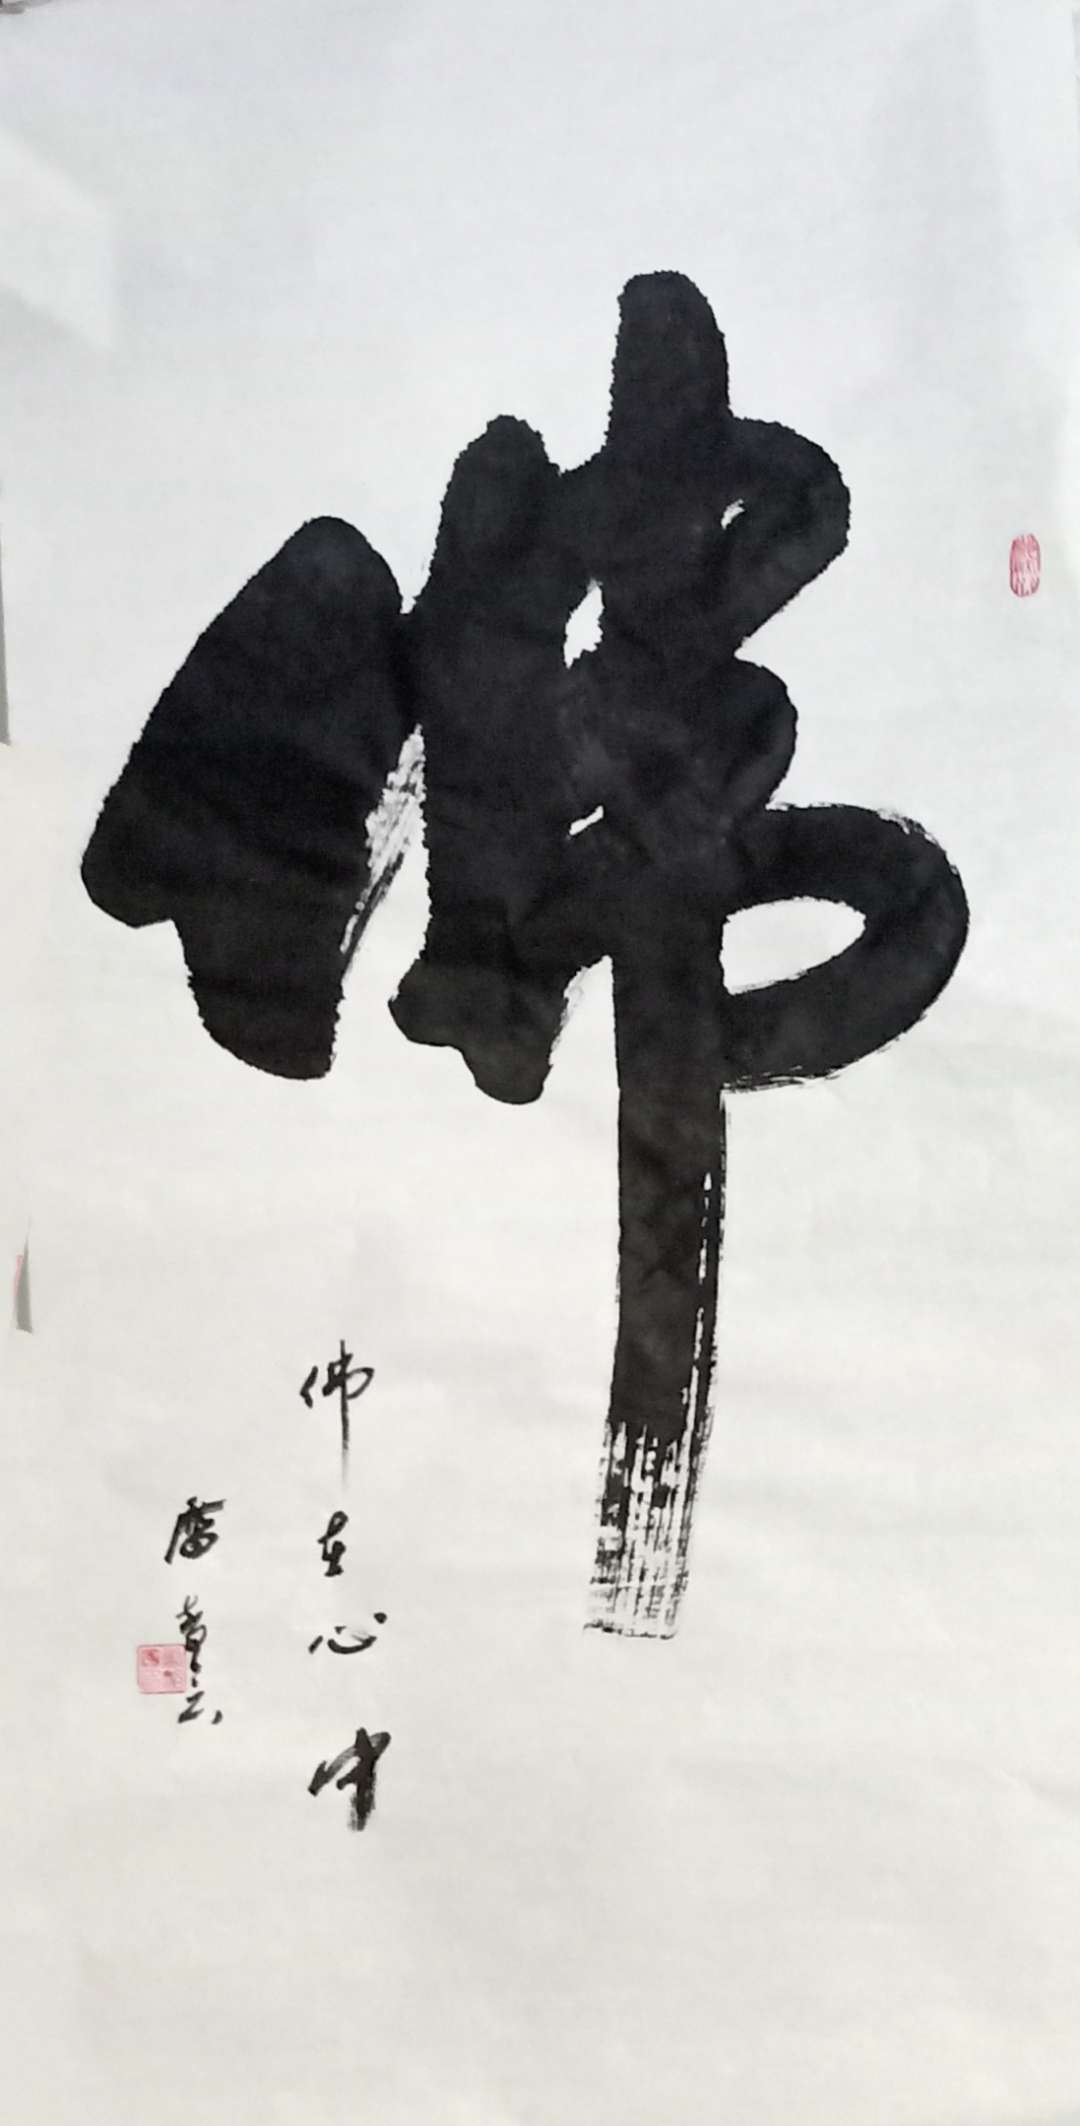 佛
佛在心中